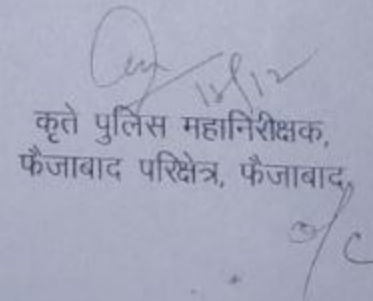 12/12
कृते पुलिस महानिरीक्षक,
फैजाबाद परिक्षेत्र, फैजाबाद,